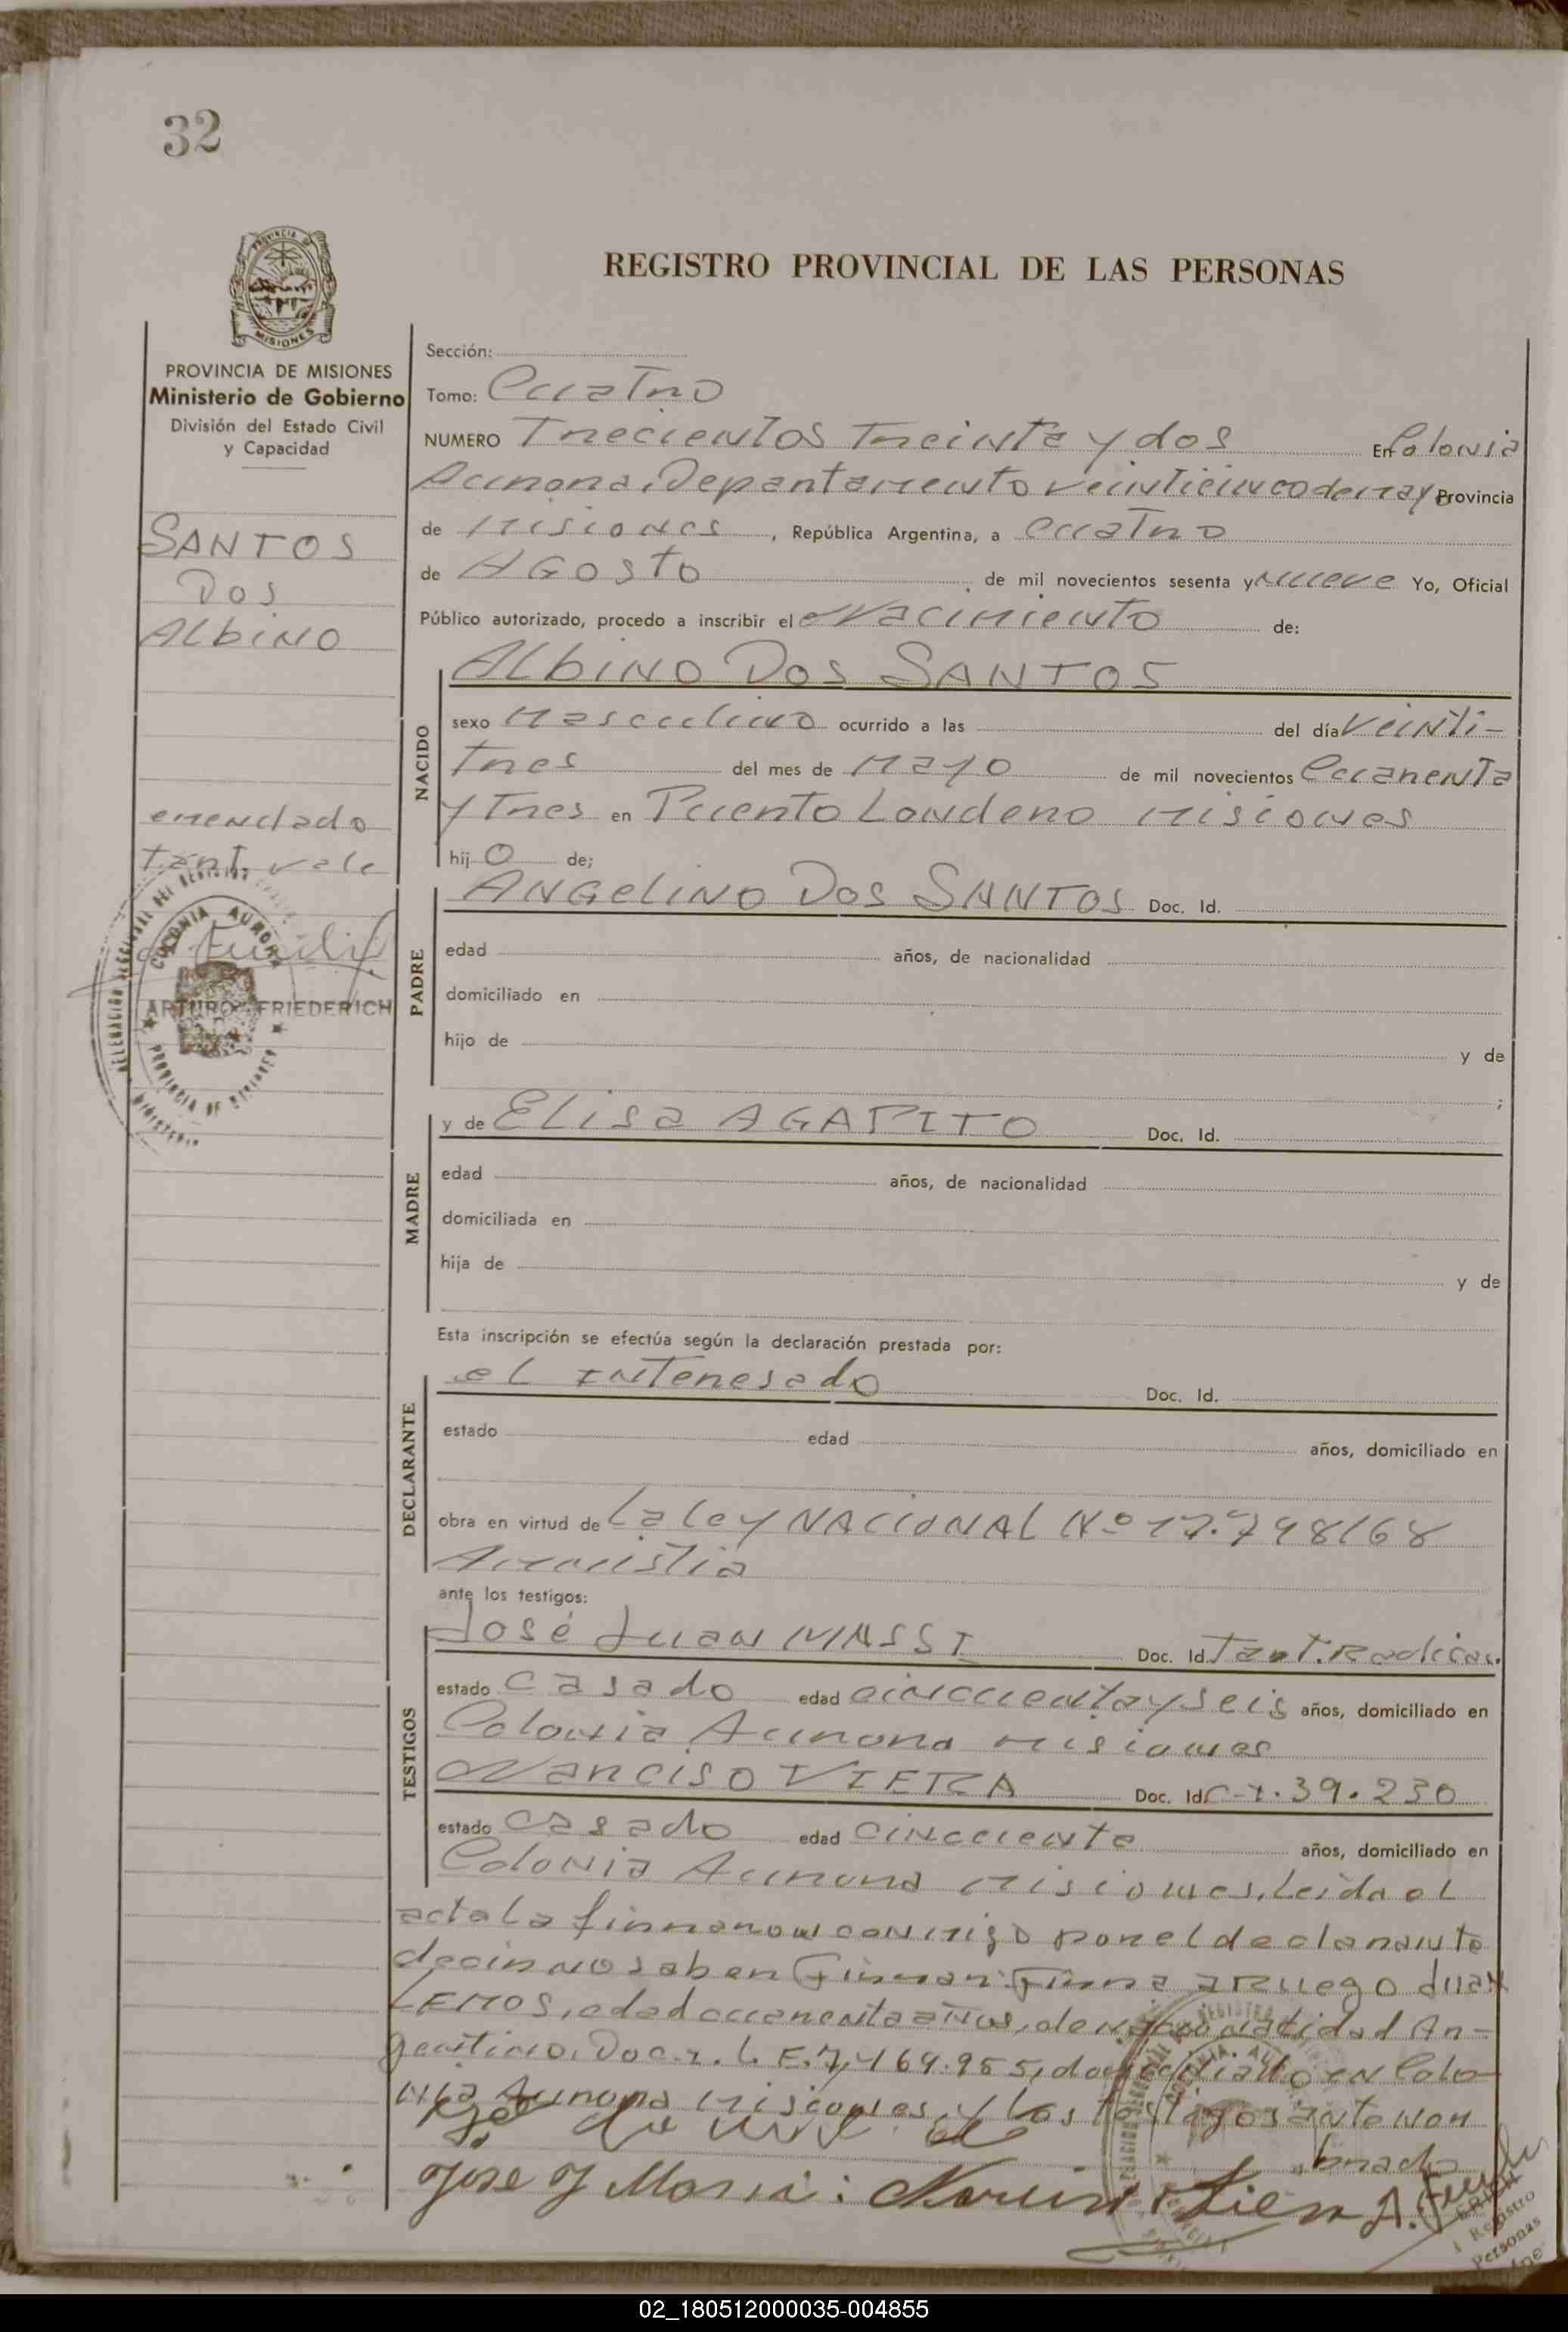 32
PROVINCIA DE MISIONES
Ministerio de Gobierno
División del Estado Civil
y Capacidad
SANTOS
DOS
ALbiNO
enmendado
tant. vale
COLONIA AURORA
ARTURO FRIEDERICH
PROVINCIA DE MISIONES
REGISTRO PROVINCIAL DE LAS PERSONAS
Sección:
Tomo: Cuatro
NUMERO Trecientos treinta y dos En Colonia
Aurora, Departamento veinticinco de mayo Provincia
de Misiones, República Argentina, a cuatro
de AGosto de mil novecientos sesenta y nueve Yo, Oficial
Público autorizado, procedo a inscribir el Nacimiento de:
ALbiNO DOS SANTOS
NACIDO
sexo Masculino ocurrido a las del día veinti-
tres del mes de Mayo de mil novecientos Cuarenta
y tres en Puerto Londero Misiones
hijo de;
PADRE
ANGeliNO DOS SANTOS Doc. Id.
edad años, de nacionalidad
domiciliado en
hijo de y de
;
MADRE
y de Elisa AGAPITO Doc. Id.
edad años, de nacionalidad
domiciliada en
hija de y de
Esta inscripción se efectúa según la declaración prestada por:
DECLARANTE
el INTeresado Doc. Id.
estado edad años, domiciliado en
obra en virtud de La ley NACIONAL Nº 17.798/68
Amnistia
ante los testigos:
TESTIGOS
José Juan MASSI Doc. Id. Tant. Radicac.
estado Casado edad cincuenta y seis años, domiciliado en
Colonia Aurora Misiones
Narciso VIERA Doc. Id. C-I. 39.230
estado casado edad cincuenta años, domiciliado en
Colonia Aurora Misiones. Leida el
acta la firmaron conmigo por el declarante
decir no saber Firmar: Firma a Ruego Juan
LEMOS, edad cuarenta años, de nacionalidad Ar-
gentino. Doc. I. L. E. 7,469.985, domiciliado en Colo-
nia Aurora Misiones y los testigos ante nom
brado
Registro
Personas
02_180512000035-004855